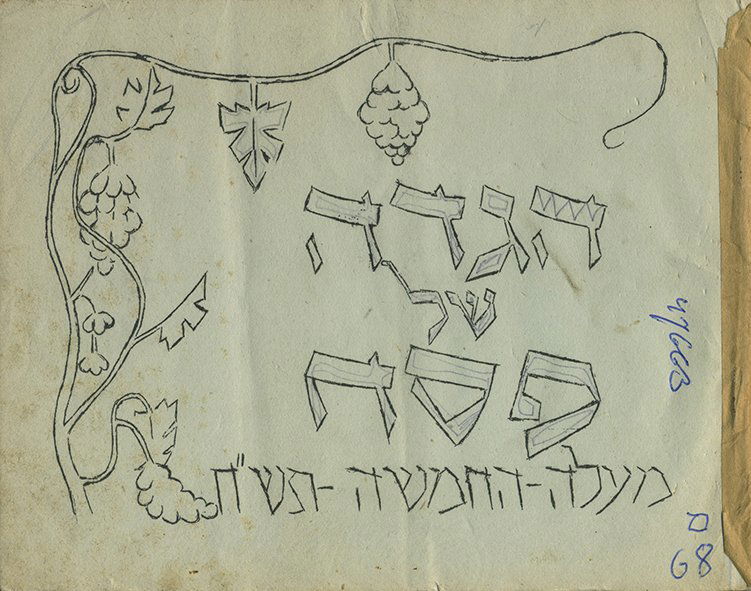 הגדה
של
פסח
מעלה-החמשה-תש"ח
47663
68